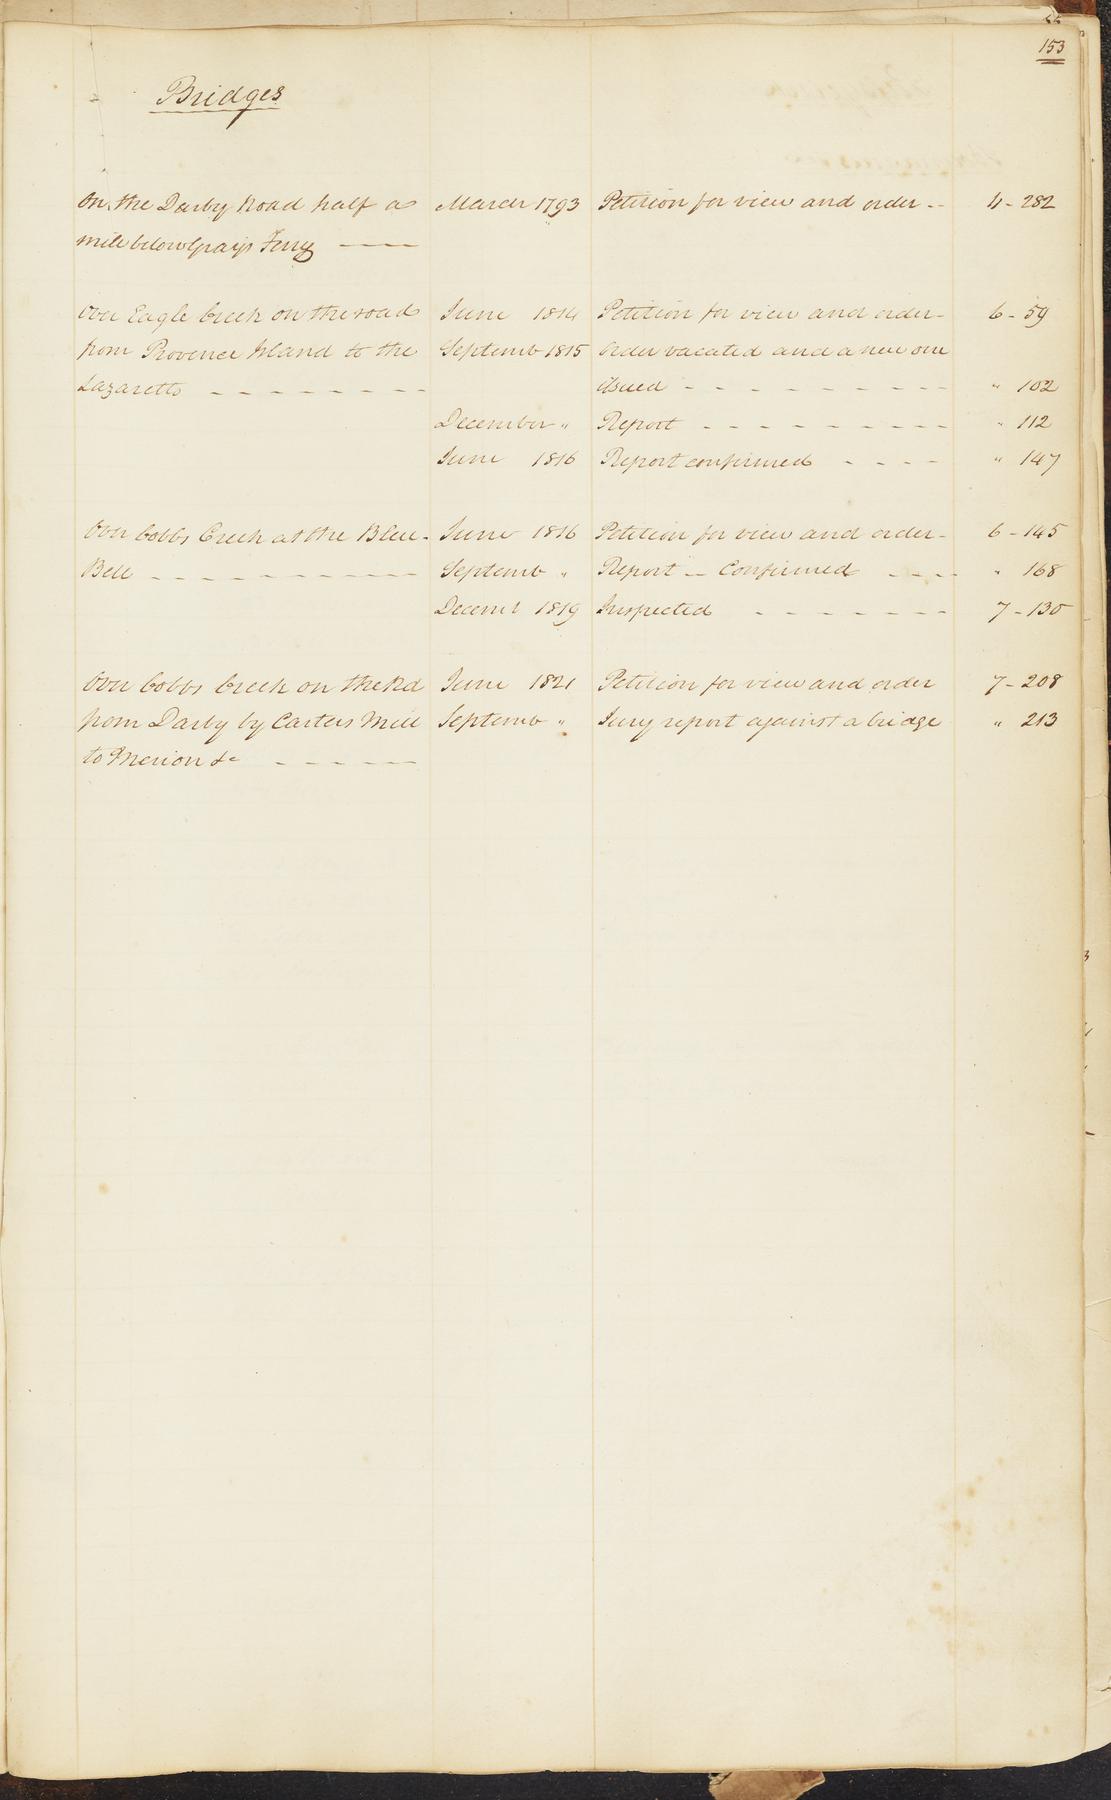 153
Bridges
On the Darby Road half a March 1793 Petition for view and order -- 4 - 282
mile below Grays Ferry ——
Over Eagle Creek on the road June 1814 Petition for view and order - 6 - 59
from Provence Island to the Septemb 1815 Order vacated and a new one
Lazaretto - - - - - - - - issued - - - - - - - - - " 102
December " Report - - - - - - - - - " 112
June 1816 Report confirmed - - - - " 147
Over Cobbs Creek at the Blue- June 1816 Petition for view and order - 6 - 145
Bell - - - - - - - - - - - Septemb " Report -- Confirmed - - - - " 168
Decemb 1819 Inspected - - - - - - - 7 - 130
Over Cobbs Creek on the Rd June 1821 Petition for view and order 7 - 208
from Darby by Carters Mill Septemb " Jury report against a bridge " 213
to Merion &c - - - - - -